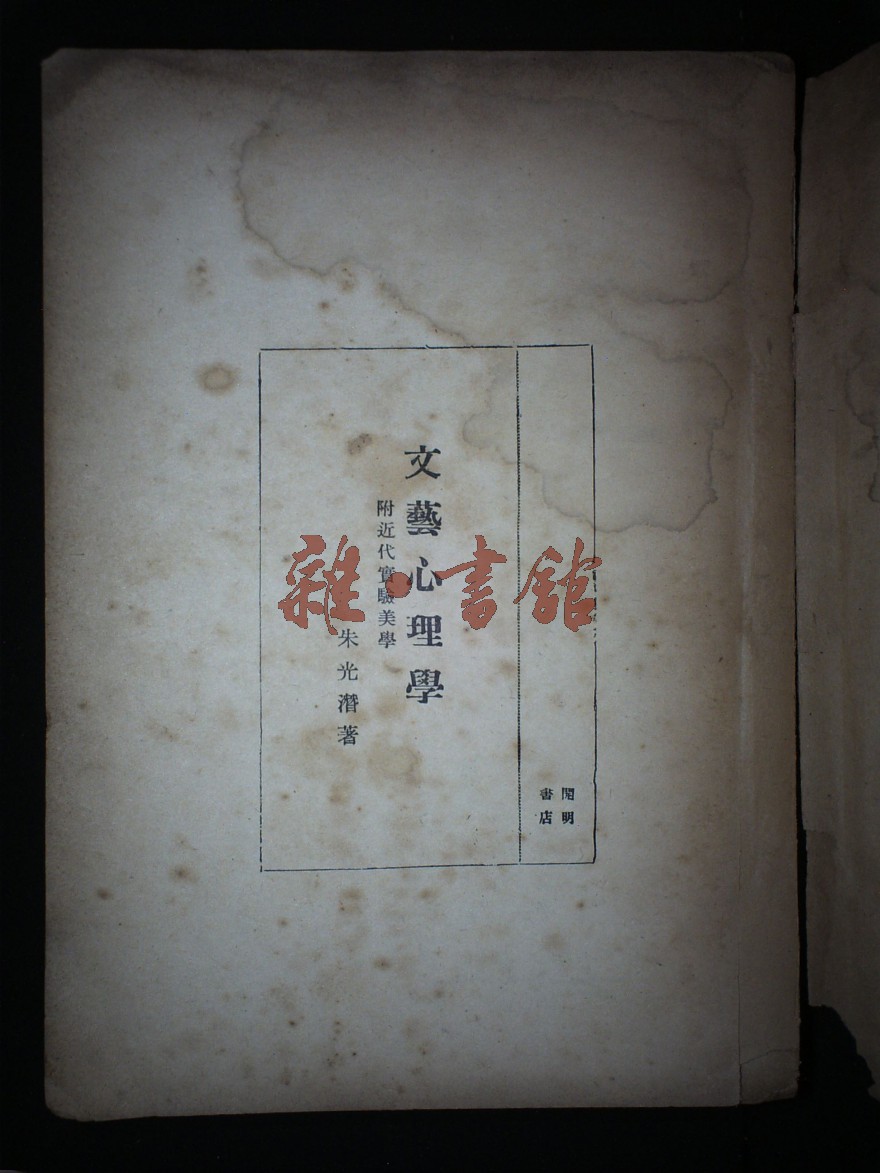 開明
書店
文藝心理學
附近代實驗美學
朱光潛著
雜·書館